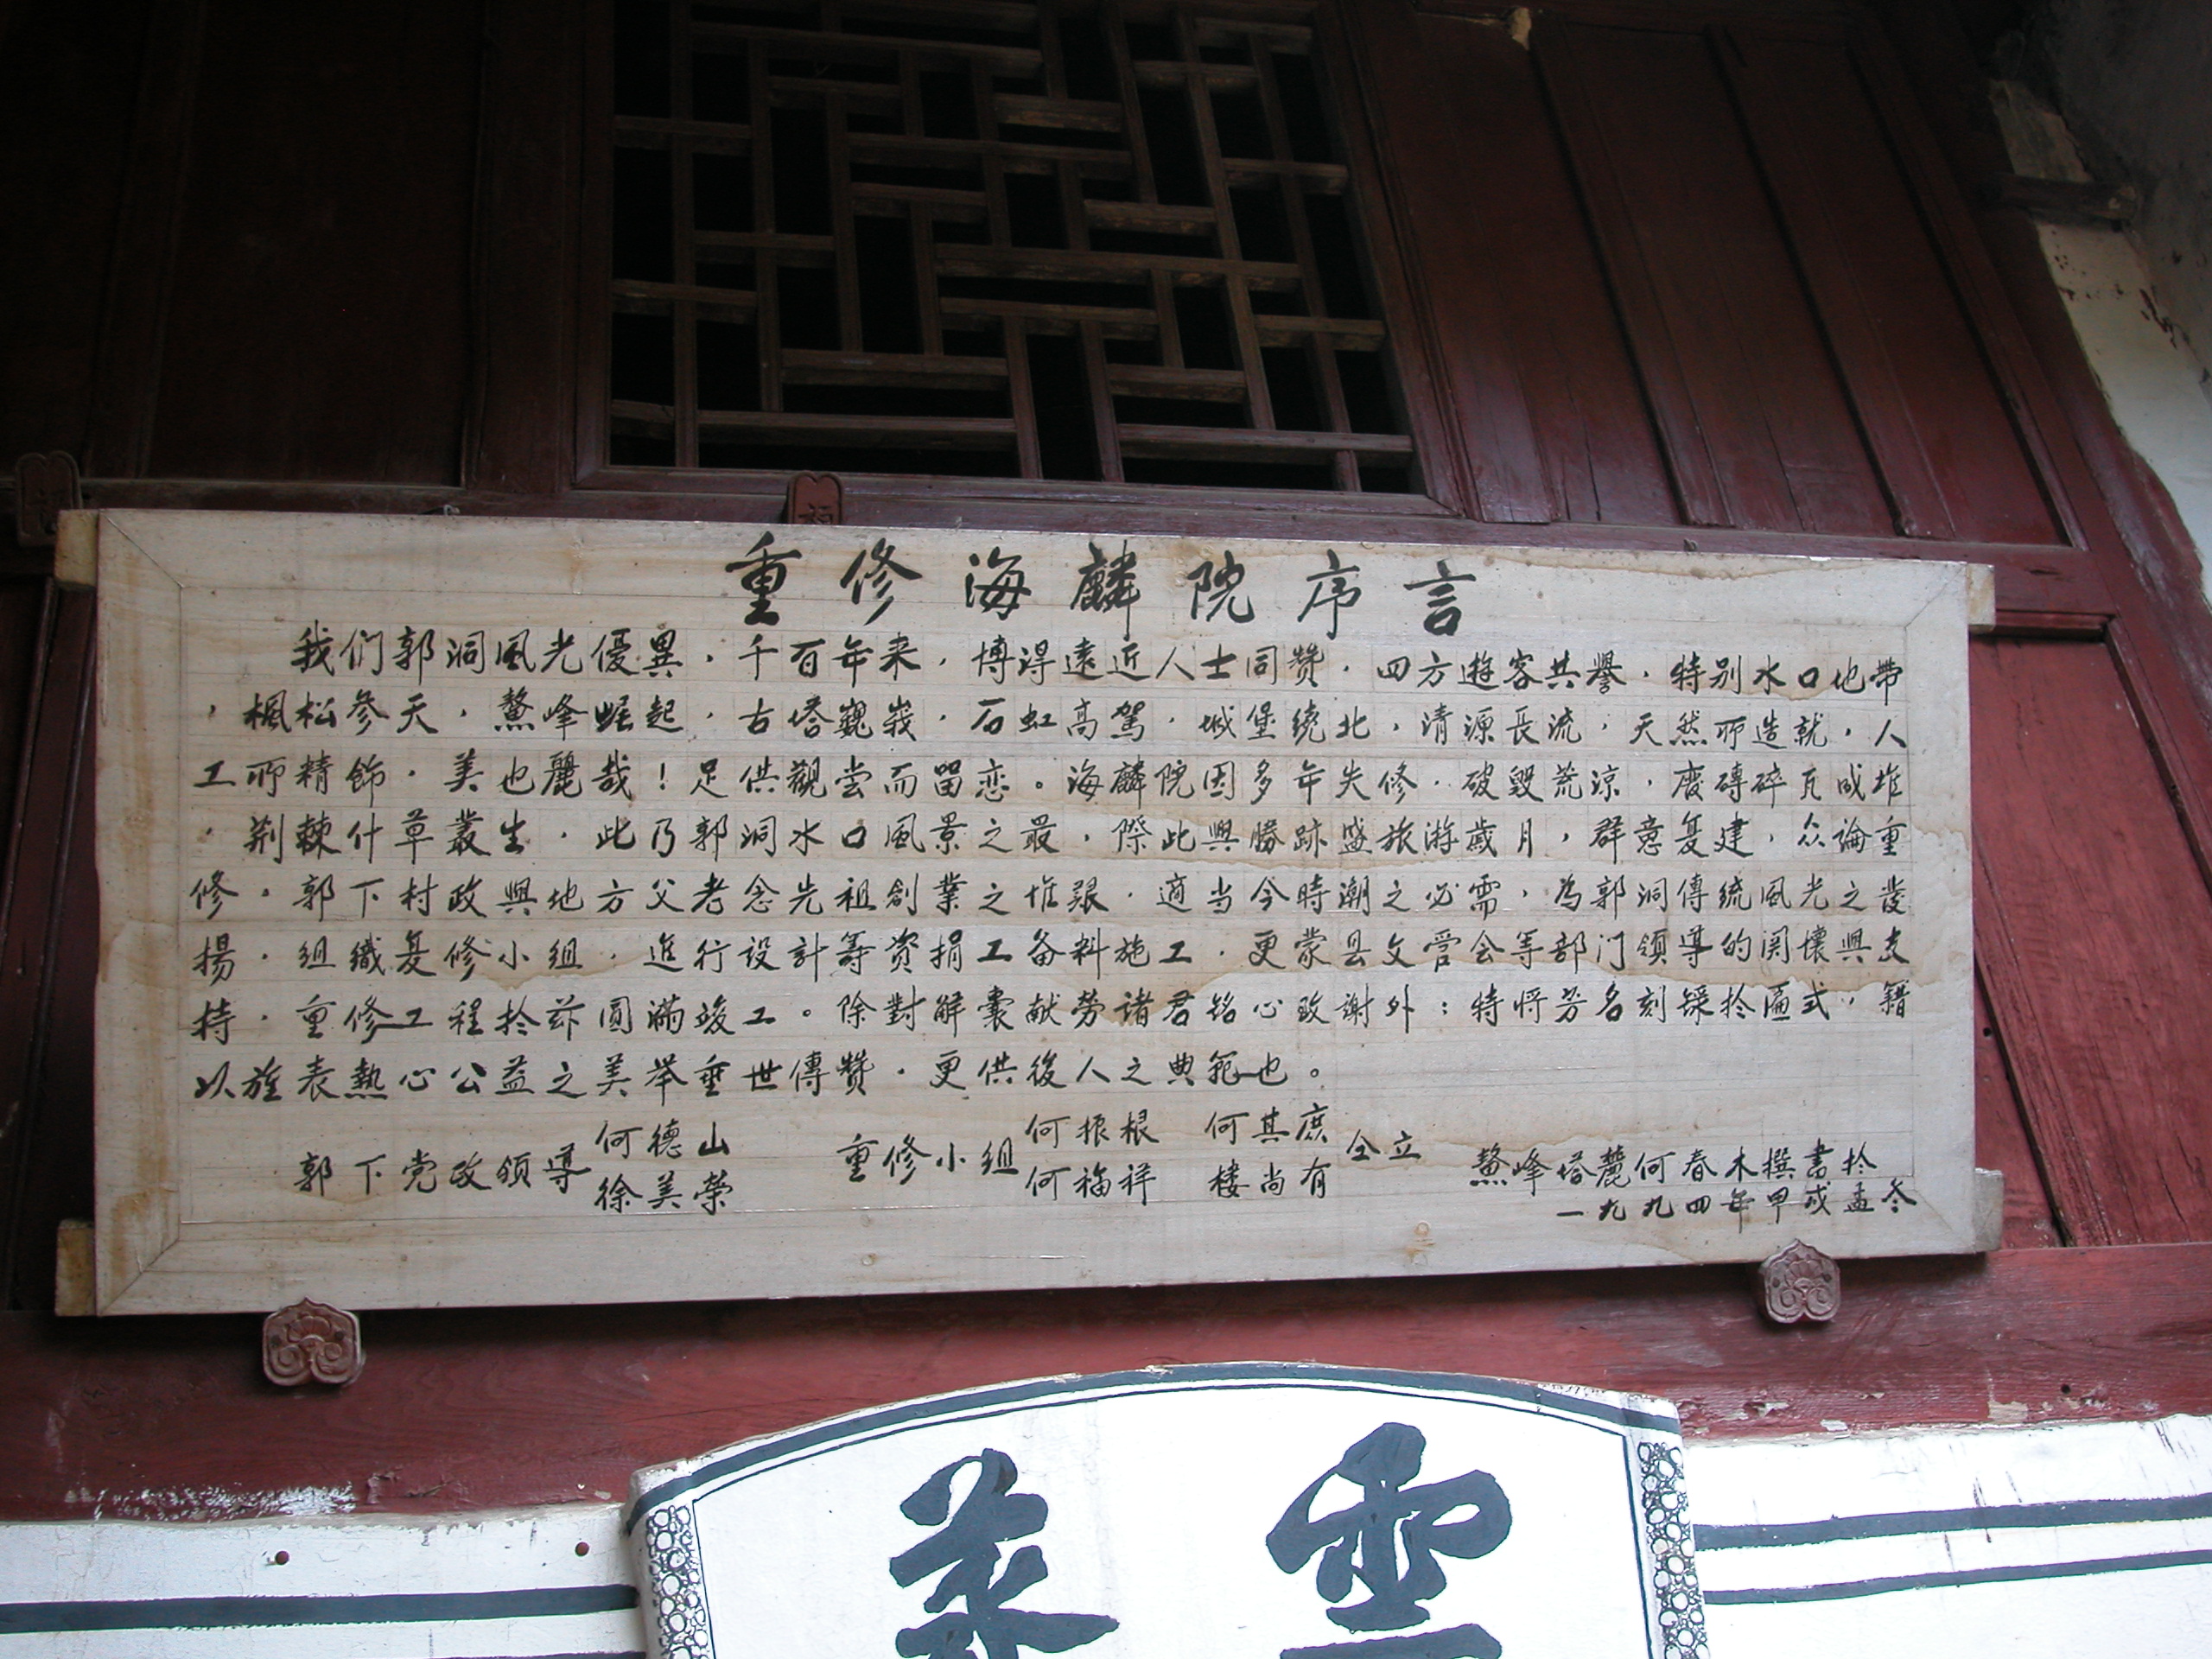 重修海麟院序言
我们郭洞風光優異，千百年来，博得遠近人士同赞，四方遊客共譽，特别水口地帶
，楓松參天，鰲峰崛起，古塔巍峩，石虹高駕，城堡绕北，清源長流，天然所造就，人
工所精飾，美也麗哉！足供觀尝而留恋。海麟院因多年失修，破毁荒凉，废磚碎瓦成堆
，荆棘什草叢生，此乃郭洞水口風景之最，際此興勝跡盛旅游歲月，群意复建，众論重
修。郭下村政與地方父老念先祖創業之惟艰，適当今時潮之必需，為郭洞傳统風光之發
揚，组織复修小组，進行设計筹资捐工备料施工，更蒙县文管会等部门领導的関懷與支
持，重修工程於兹圓滿竣工。除對解囊献劳诸君铭心致謝外：特将芳名刻錄於匾式，籍
以旌表熱心公益之美举垂世傳赞，更供後人之典範也。
郭下党政领導 何德山 徐美榮 重修小组 何振根 何福祥 何其庶 楼尚有 仝立
鰲峰塔麓何春木撰書於
一九九四年甲戌孟冬
福